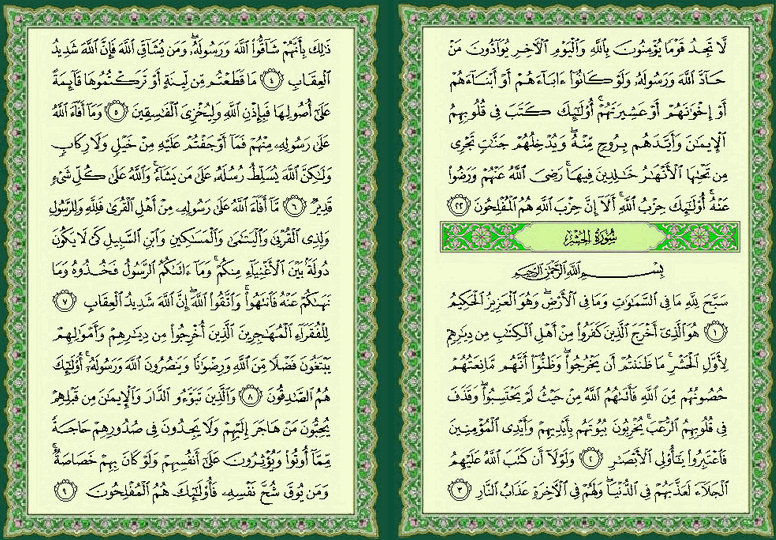 لَّا تَجِدُ قَوْمًا يُؤْمِنُونَ بِٱللَّهِ وَٱلْيَوْمِ ٱلْـَٔاخِرِ يُوَآدُّونَ مَنْ
حَآدَّ ٱللَّهَ وَرَسُولَهُۥ وَلَوْ كَانُوٓا۟ ءَابَآءَهُمْ أَوْ أَبْنَآءَهُمْ
أَوْ إِخْوَٰنَهُمْ أَوْ عَشِيرَتَهُمْ ۚ أُو۟لَـٰٓئِكَ كَتَبَ فِى قُلُوبِهِمُ
ٱلْإِيمَـٰنَ وَأَيَّدَهُم بِرُوحٍ مِّنْهُ ۖ وَيُدْخِلُهُمْ جَنَّـٰتٍ تَجْرِى
مِن تَحْتِهَا ٱلْأَنْهَـٰرُ خَـٰلِدِينَ فِيهَا ۚ رَضِىَ ٱللَّهُ عَنْهُمْ وَرَضُوا۟
عَنْهُ ۚ أُو۟لَـٰٓئِكَ حِزْبُ ٱللَّهِ ۚ أَلَآ إِنَّ حِزْبَ ٱللَّهِ هُمُ ٱلْمُفْلِحُونَ ٢٢
سُورَةُ الحَشْرِ
بِسْمِ ٱللَّهِ ٱلرَّحْمَـٰنِ ٱلرَّحِيمِ
سَبَّحَ لِلَّهِ مَا فِى ٱلسَّمَـٰوَٰتِ وَمَا فِى ٱلْأَرْضِ ۖ وَهُوَ ٱلْعَزِيزُ ٱلْحَكِيمُ
١ هُوَ ٱلَّذِىٓ أَخْرَجَ ٱلَّذِينَ كَفَرُوا۟ مِنْ أَهْلِ ٱلْكِتَـٰبِ مِن دِيَـٰرِهِمْ
لِأَوَّلِ ٱلْحَشْرِ ۚ مَا ظَنَنتُمْ أَن يَخْرُجُوا۟ ۖ وَظَنُّوٓا۟ أَنَّهُم مَّانِعَتُهُمْ
حُصُونُهُم مِّنَ ٱللَّهِ فَأَتَىٰهُمُ ٱللَّهُ مِنْ حَيْثُ لَمْ يَحْتَسِبُوا۟ ۖ وَقَذَفَ
فِى قُلُوبِهِمُ ٱلرُّعْبَ ۚ يُخْرِبُونَ بُيُوتَهُم بِأَيْدِيهِمْ وَأَيْدِى ٱلْمُؤْمِنِينَ
فَٱعْتَبِرُوا۟ يَـٰٓأُو۟لِى ٱلْأَبْصَـٰرِ ٢ وَلَوْلَآ أَن كَتَبَ ٱللَّهُ عَلَيْهِمُ
ٱلْجَلَآءَ لَعَذَّبَهُمْ فِى ٱلدُّنْيَا ۖ وَلَهُمْ فِى ٱلْـَٔاخِرَةِ عَذَابُ ٱلنَّارِ ٣
ذَٰلِكَ بِأَنَّهُمْ شَآقُّوا۟ ٱللَّهَ وَرَسُولَهُۥ ۖ وَمَن يُشَآقِّ ٱللَّهَ فَإِنَّ ٱللَّهَ شَدِيدُ
ٱلْعِقَابِ ٤ مَا قَطَعْتُم مِّن لِّينَةٍ أَوْ تَرَكْتُمُوهَا قَآئِمَةً
عَلَىٰٓ أُصُولِهَا فَبِإِذْنِ ٱللَّهِ وَلِيُخْزِىَ ٱلْفَـٰسِقِينَ ٥ وَمَآ أَفَآءَ ٱللَّهُ
عَلَىٰ رَسُولِهِۦ مِنْهُمْ فَمَآ أَوْجَفْتُمْ عَلَيْهِ مِنْ خَيْلٍ وَلَا رِكَابٍ
وَلَـٰكِنَّ ٱللَّهَ يُسَلِّطُ رُسُلَهُۥ عَلَىٰ مَن يَشَآءُ ۚ وَٱللَّهُ عَلَىٰ كُلِّ شَىْءٍ
قَدِيرٌ ٦ مَّآ أَفَآءَ ٱللَّهُ عَلَىٰ رَسُولِهِۦ مِنْ أَهْلِ ٱلْقُرَىٰ فَلِلَّهِ وَلِلرَّسُولِ
وَلِذِى ٱلْقُرْبَىٰ وَٱلْيَتَـٰمَىٰ وَٱلْمَسَـٰكِينِ وَٱبْنِ ٱلسَّبِيلِ كَىْ لَا يَكُونَ
دُولَةًۢ بَيْنَ ٱلْأَغْنِيَآءِ مِنكُمْ ۚ وَمَآ ءَاتَىٰكُمُ ٱلرَّسُولُ فَخُذُوهُ وَمَا
نَهَىٰكُمْ عَنْهُ فَٱنتَهُوا۟ ۚ وَٱتَّقُوا۟ ٱللَّهَ ۖ إِنَّ ٱللَّهَ شَدِيدُ ٱلْعِقَابِ ٧
لِلْفُقَرَآءِ ٱلْمُهَـٰجِرِينَ ٱلَّذِينَ أُخْرِجُوا۟ مِن دِيَـٰرِهِمْ وَأَمْوَٰلِهِمْ
يَبْتَغُونَ فَضْلًا مِّنَ ٱللَّهِ وَرِضْوَٰنًا وَيَنصُرُونَ ٱللَّهَ وَرَسُولَهُۥٓ ۚ أُو۟لَـٰٓئِكَ
هُمُ ٱلصَّـٰدِقُونَ ٨ وَٱلَّذِينَ تَبَوَّءُو ٱلدَّارَ وَٱلْإِيمَـٰنَ مِن قَبْلِهِمْ
يُحِبُّونَ مَنْ هَاجَرَ إِلَيْهِمْ وَلَا يَجِدُونَ فِى صُدُورِهِمْ حَاجَةً
مِّمَّآ أُوتُوا۟ وَيُؤْثِرُونَ عَلَىٰٓ أَنفُسِهِمْ وَلَوْ كَانَ بِهِمْ خَصَاصَةٌ ۚ
وَمَن يُوقَ شُحَّ نَفْسِهِۦ فَأُو۟لَـٰٓئِكَ هُمُ ٱلْمُفْلِحُونَ ٩